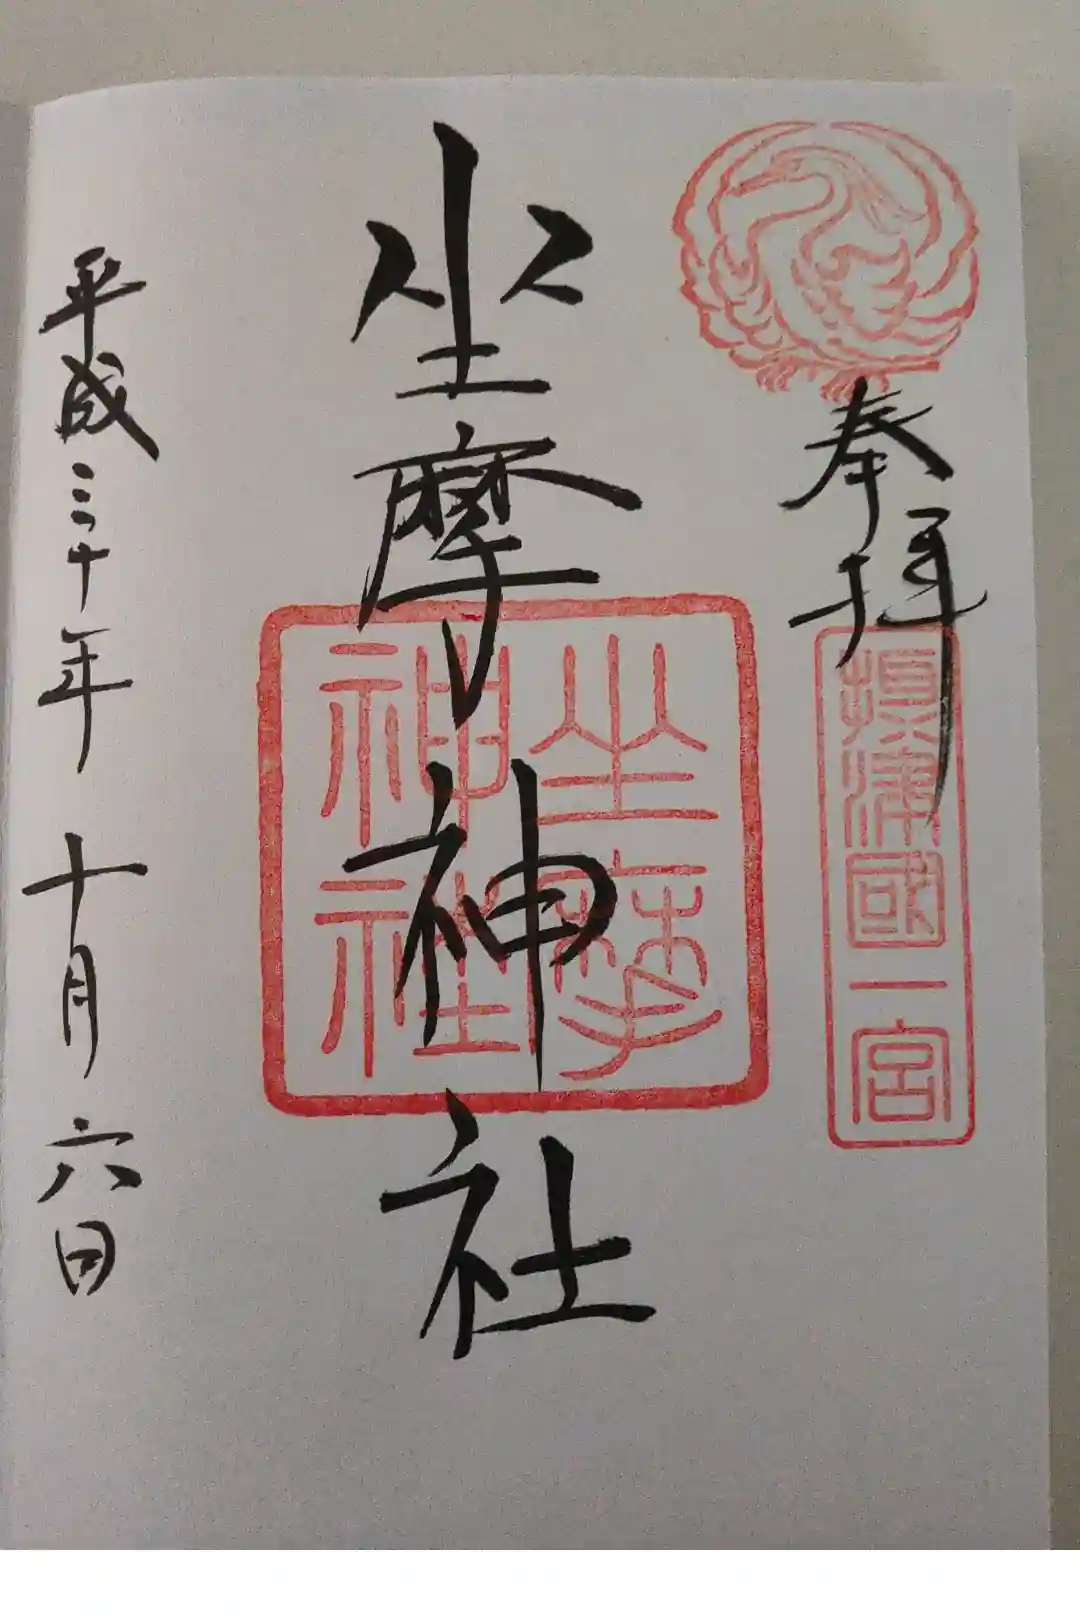 奉拝
摂津國一宮
坐摩神社
坐摩
神社
平成三十年 十月 六日